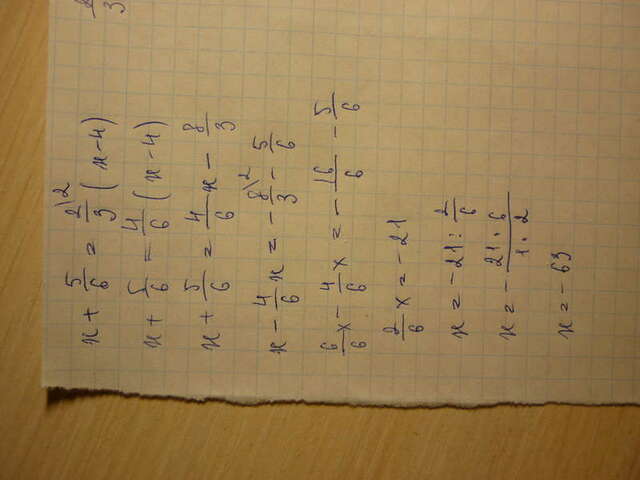 2/3
x + 5/6 = 2\2/3 (x-4)
x + 5/6 = 4/6 (x-4)
x + 5/6 = 4/6 x - 8/3
x - 4/6 x = - 8\2/3 - 5/6
6/6 x - 4/6 x = - 16/6 - 5/6
2/6 x = -21
x = -21 : 2/6
x = - 21 · 6/1 · 2
x = -63